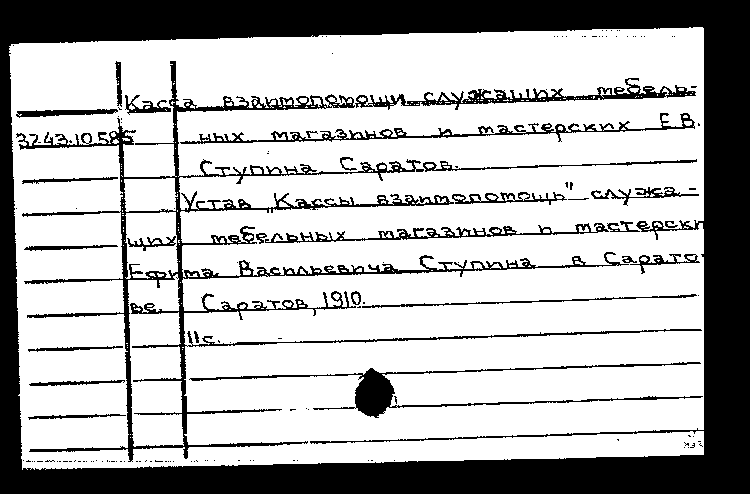 Касса взаимопомощи служащих мебель-
3243.10.585 ных магазинов и мастерских Е.В.
Ступина. Саратов.
Устав „Кассы взаимопомощь" служа-
щих мебельных магазинов и мастерски
Ефима Васильевича Ступина в Сарато-
ве. Саратов, 1910.
11с.